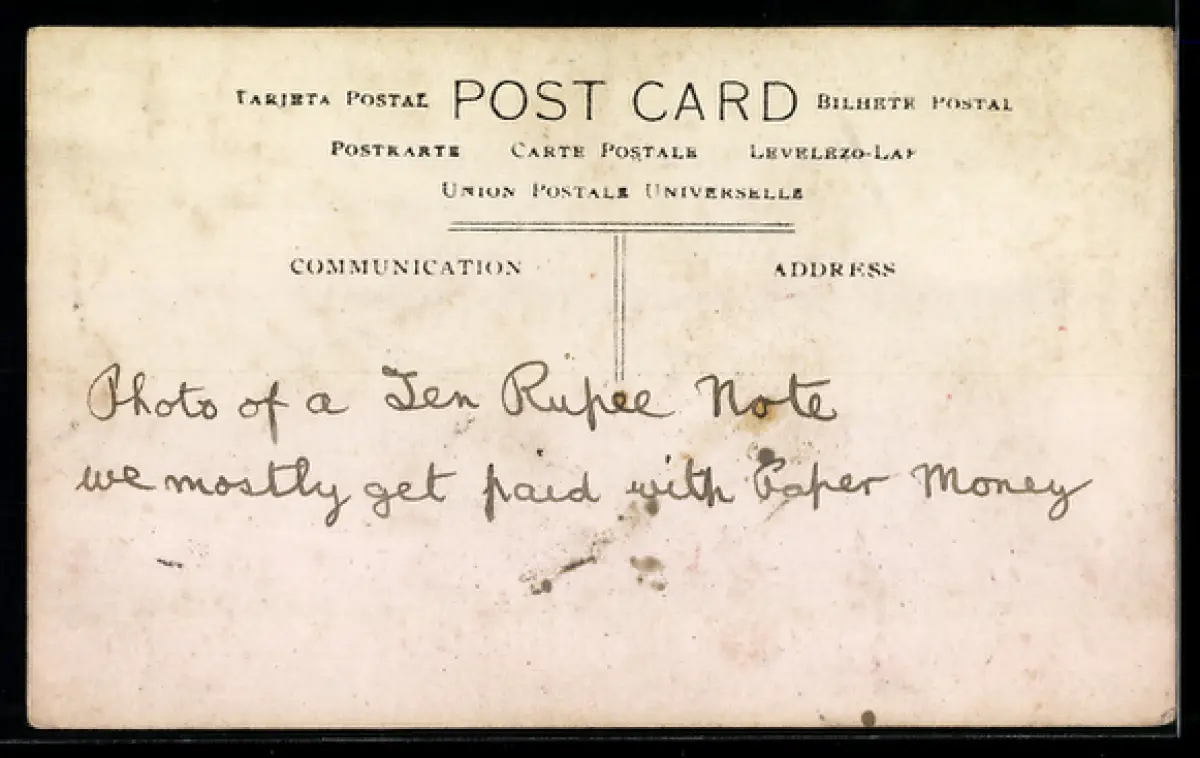 TARJETA POSTAL POST CARD BILHETE POSTAL
POSTKARTE CARTE POSTALE LEVELEZO-LAP
UNION POSTALE UNIVERSELLE
COMMUNICATION ADDRESS
Photo of a Ten Rupee Note
we mostly get paid with Paper Money